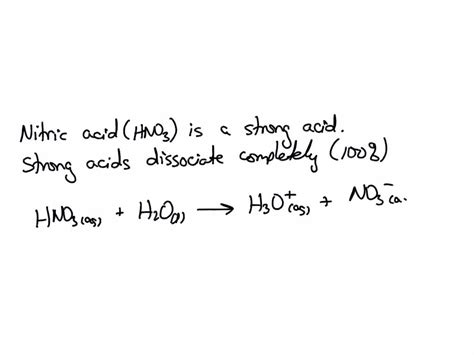 Nitric acid (HNO₃) is a strong acid.
Strong acids dissociate completely (100%)
HNO₃(aq) + H₂O(l) ⟶ H₃O⁺(aq) + NO₃⁻(a.